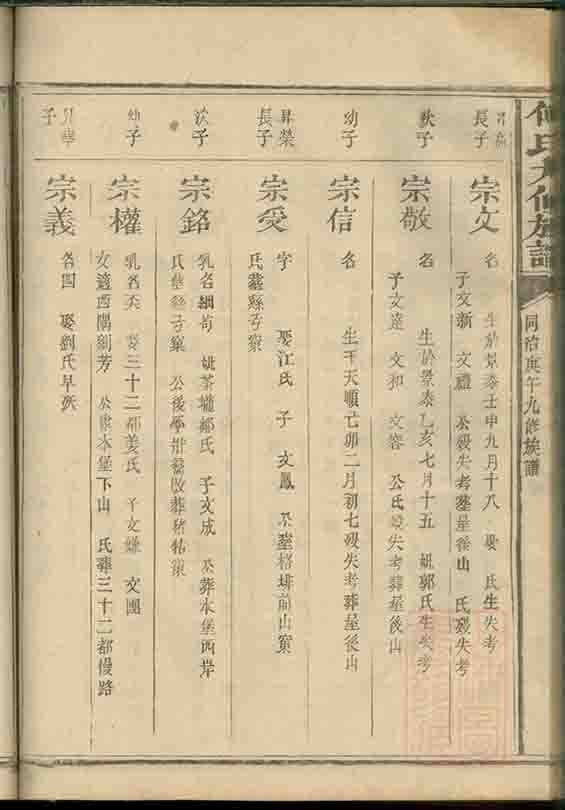 何氏九修族譜
同治庚午九修族譜
長子
宗文
名 生於景泰壬申九月十八 娶 氏生失考
子文新 文禮 公歿失考塟屋後山 氏歿失考
次子
宗敬
名 生於景泰乙亥七月十五 娶郭氏生失考
子文達 文和 文容 公氏歿失考葬屋後山
幼子
宗信
名 生于天順丁卯二月初七歿失考葬屋後山
昇榮
長子
宗受
字 娶江氏 子 文鳳 公塟格排前山窠
氏塟縣子窠
次子
宗銘
乳名細苟 娶茶壠鄒氏 子文成 公葬水堡西岸
氏華 子窠 公後學 改葬豬牯窠
幼子
宗權
乳名 娶三十二都姜氏 子文嫌 文團
女適西隅劉芳 公塟水堡下山 氏葬三十二都慢路
昇華
子
宗義
名四 娶劉氏早殀